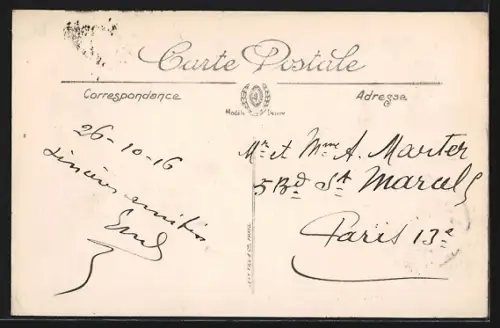 Carte Postale
Correspondance
Adresse
Modèle Déposé
26-10-16
Sincères amitiés
Mr. et Mme A. Marter
5 Bd St Marcel
Paris 13e